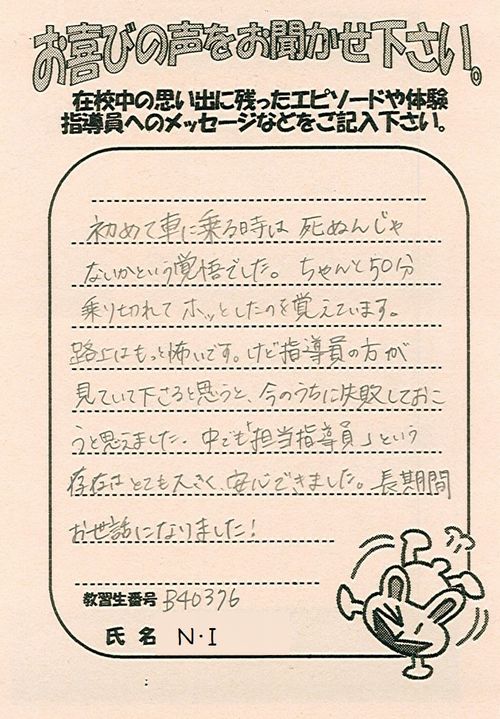 お喜びの声をお聞かせ下さい。
在校中の思い出に残ったエピソードや体験
指導員へのメッセージなどをご記入下さい。
初めて車に乗る時は 死ぬんじゃ
ないかという覚悟でした。ちゃんと50分
乗り切れて ホッとしたのを覚えています。
路上はもっと怖いです。けど指導員の方が
見ていて下さると思うと、今のうちに失敗しておこ
うと思えました。中でも「担当指導員」という
存在はとても大きく、安心できました。長期間
お世話になりました！
教習生番号 B40376
氏名 N・I